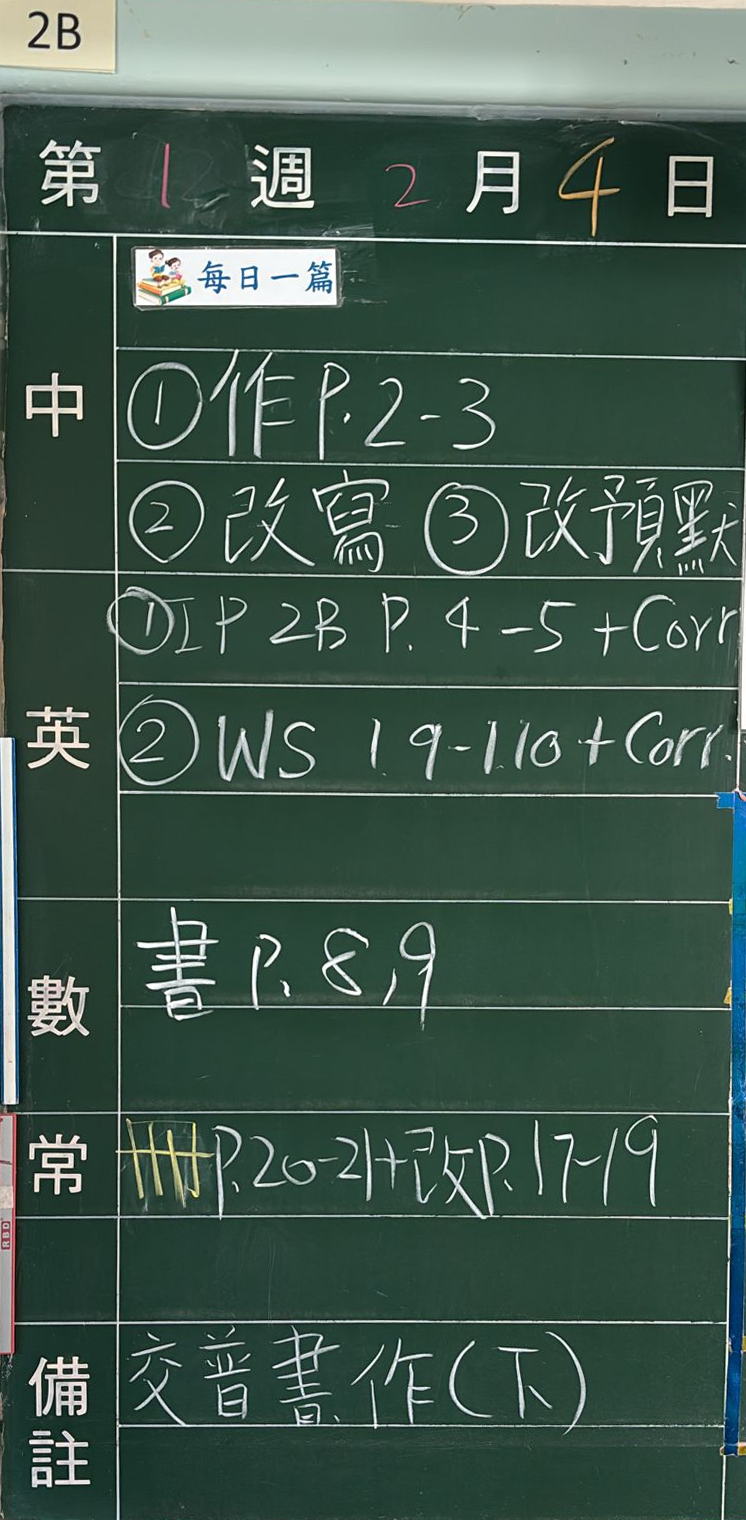 2B
第 1 週 2 月 4 日
每日一篇
中
①作 P.2-3
②改寫 ③改預默
英
①IP 2B P. 4-5 +Corr
②WS 1.9-1.10 + Corr.
數
書 P. 8,9
常
冊 P.20-21+改P.17-19
備註
交普書、作(下)